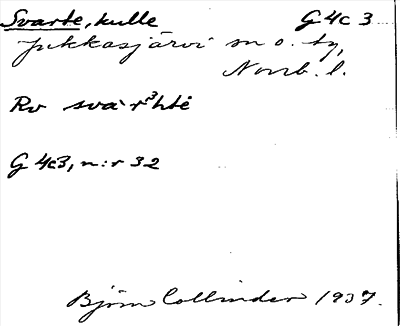 Svarte, kulle G 4c 3
Jukkasjärvi sn o. tg,
Norrb. l.
Rv svàr³htē
G 4c3, n:r 32
Björn Collinder 1937.